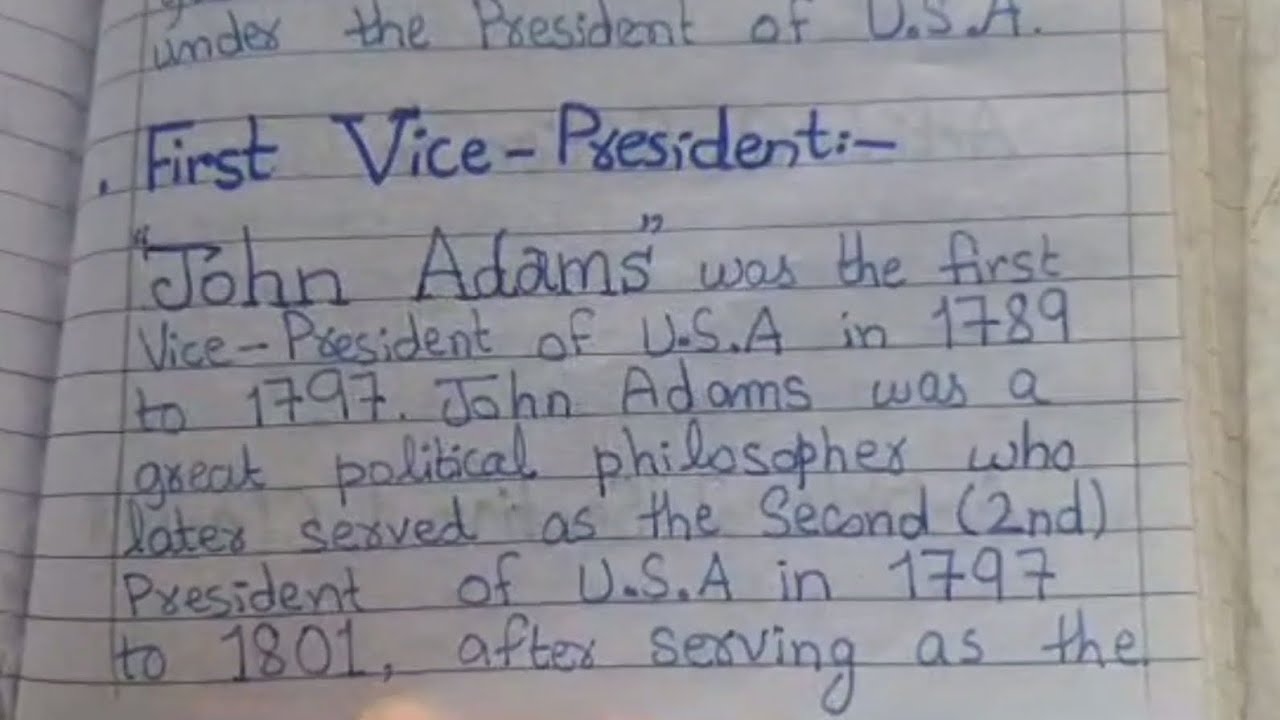 under the President of U.S.A.
. First Vice-President:-
"John Adams" was the first
Vice-President of U.S.A in 1789
to 1797. John Adams was a
great political philosopher who
later served as the Second (2nd)
President of U.S.A in 1797
to 1801, after serving as the